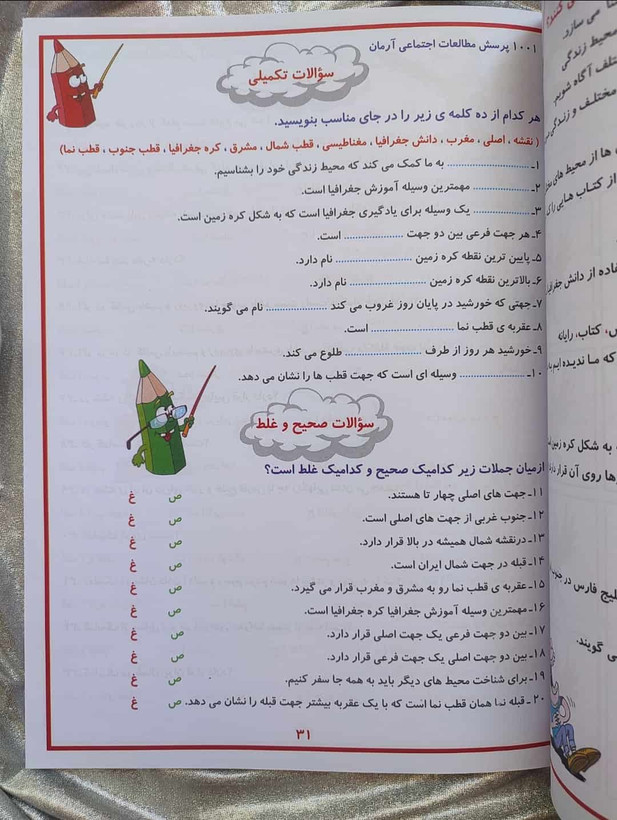 ۱۰۰۱ پرسش مطالعات اجتماعی آرمان
سؤالات تکمیلی
هر کدام از ده کلمه ی زیر را در جای مناسب بنویسید.
( نقشه ، اصلی ، مغرب ، دانش جغرافیا ، مغناطیسی ، قطب شمال ، مشرق ، کره جغرافیا ، قطب جنوب ، قطب نما)
۱ـ ................. به ما کمک می کند که محیط زندگی خود را بشناسیم.
۲ـ ................. مهمترین وسیله آموزش جغرافیا است.
۳ـ ................. یک وسیله برای یادگیری جغرافیا است که به شکل کره زمین است.
۴ـ هر جهت فرعی بین دو جهت ................. است.
۵ـ پایین ترین نقطه کره زمین ................. نام دارد.
۶ـ بالاترین نقطه کره زمین ................. نام دارد.
۷ـ جهتی که خورشید در پایان روز غروب می کند ................. نام می گویند.
۸ـ عقربه ی قطب نما ................. است.
۹ـ خورشید هر روز از طرف ................. طلوع می کند.
۱۰ـ ................. وسیله ای است که جهت قطب ها را نشان می دهد.
سؤالات صحیح و غلط
ازمیان جملات زیر کدامیک صحیح و کدامیک غلط است؟
۱۱ـ جهت های اصلی چهار تا هستند. ص غ
۱۲ـ جنوب غربی از جهت های اصلی است. ص غ
۱۳ـ درنقشه شمال همیشه در بالا قرار دارد. ص غ
۱۴ـ قبله در جهت شمال ایران است. ص غ
۱۵ـ عقربه ی قطب نما رو به مشرق و مغرب قرار می گیرد. ص غ
۱۶ـ مهمترین وسیله آموزش جغرافیا کره جغرافیا است. ص غ
۱۷ـ بین دو جهت فرعی یک جهت اصلی قرار دارد. ص غ
۱۸ـ بین دو جهت اصلی یک جهت فرعی قرار دارد. ص غ
۱۹ـ برای شناخت محیط های دیگر باید به همه جا سفر کنیم. ص غ
۲۰ـ قبله نما همان قطب نما است که با یک عقربه بیشتر جهت قبله را نشان می دهد. ص غ
۳۱
می سازد.
محیط زندگی
آگاه شویم.
مختلف و زندگی
ها از محیط های
از کتاب هایی
از دانش
کتاب، رایانه
که ما ندیده ایم
به شکل کره زمین
روی آن قرار
فارس در
گویند.